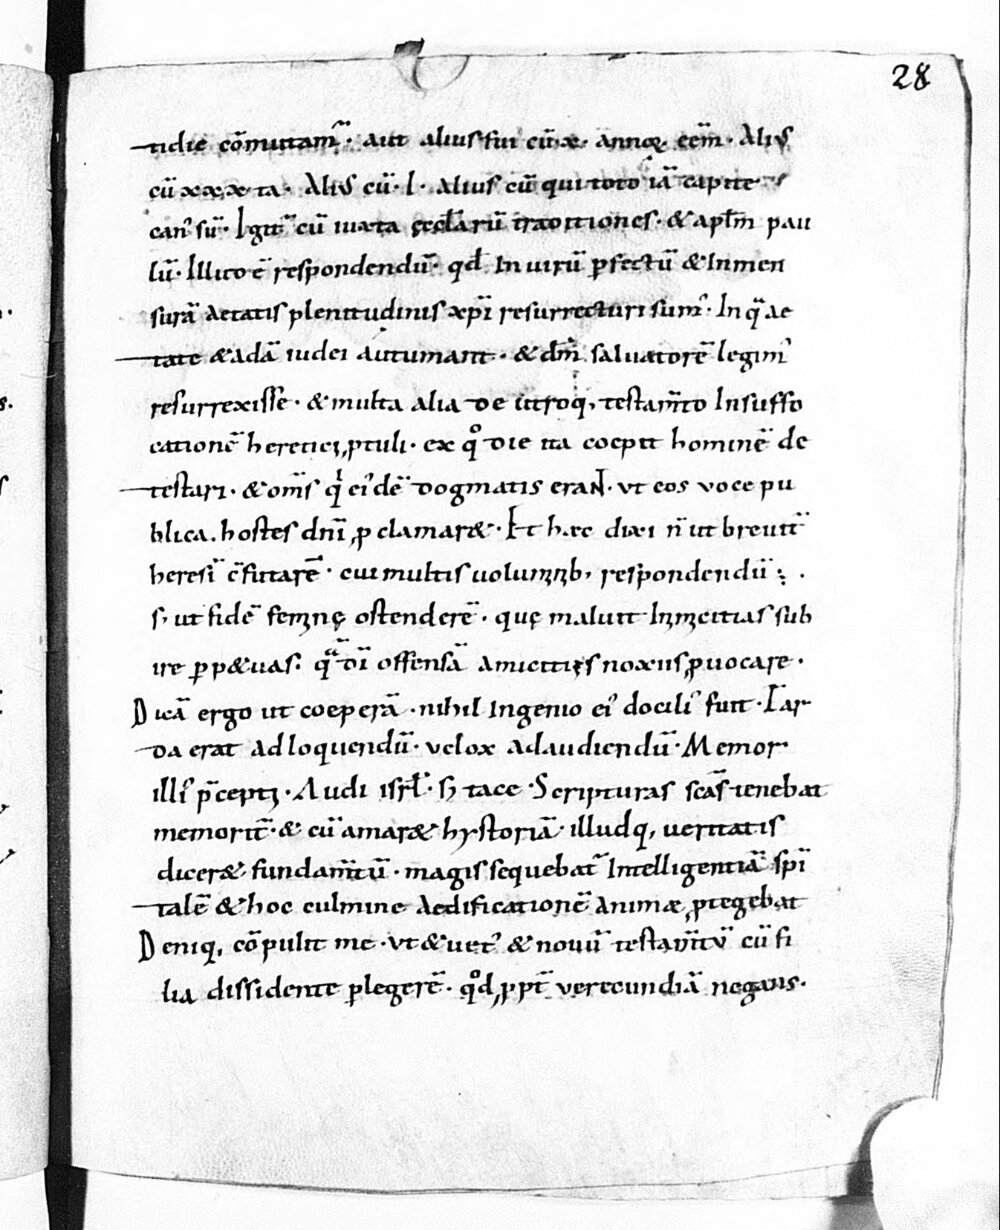 28
tidie cōmutam̄ · aut alius fui cū · x · annoꝝ eēm · Aliꝰ
cū xxx ta · Aliꝰ cū · l · alius cū qui toto iā capite
canꝰ sū · Igit̄ cū iuxta ęcclārū traditiones · & aptm̄ pau
lū · Illico ē respondendū · qd̄ In uirū ꝑfectū & In men
surā aetatis plenitudinis xpī resurrecturi sumꝰ · In q̄ ae
tate & adā iudei autumant · & dn̄m saluatorē legimꝰ
resurrexisse · & multa alia de utroq, testam̄to In suffo
cationē heretici ꝓtuli · ex qͦ die ita coepit hominē de
testari · & om̄s qͥ eiꝰdē dogmatis eraNt · ut eos uoce pu
blica · hostes dnī ꝓclamar& · Et haec dixi n̄ ut breuit̄
heresī c̄futarē · cui multis uoluminib, respondendū ; ·
s, ut fidē feminę ostenderē · quę maluit Inimicitias sub
ire ꝑp&uas · q̄ dī offensā amicitiis noxiis ꝓuocare ·
Dicā ergo ut coeperā · nihil Ingenio eiꝰ dociliꝰ fuit · Tar
da erat ad loquendū · uelox ad audiendū · Memor
illiꝰ p̄cepti · Audi isrl̄ · & tace · Scripturas scās tenebat
memorit̄ · & cū amar& hystoriā · illudq, ueritatis
dicer& · fundam̄tū · magis sequebat̄ Intelligentiā spī
talē & hoc culmine aedificationē animæ ꝓtegebat
Deniq, cōpulit me · ut & uetꝰ & nouū testam̄tū cū fi
lia dissidente ꝑlegerē · qͦd ꝓpt̄ uerecundiā negans ·